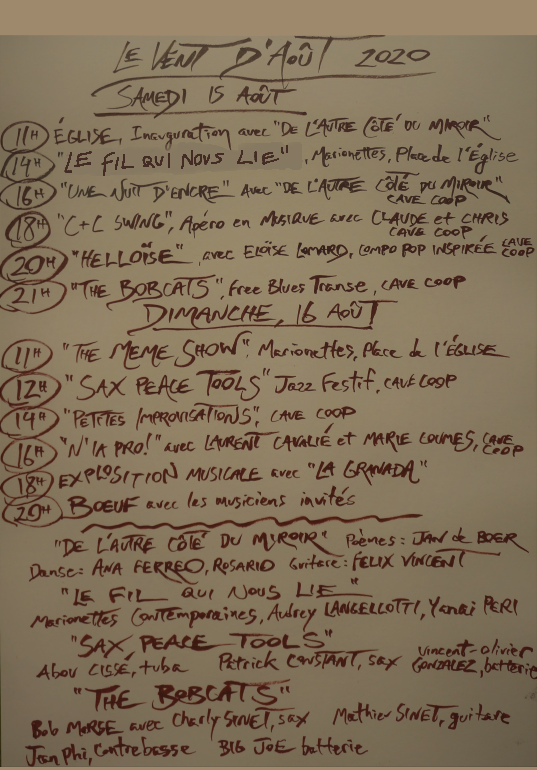 LE VENT D'AOÛT 2020
SAMEDI 15 AOÛT
11H ÉGLISE, Inauguration avec "DE L'AUTRE CÔTÉ DU MIROIR"
14H "LE FIL QUI NOUS LIE", Marionettes, Place de l'Église
16H "UNE NUIT D'ENCRE" Avec "DE L'AUTRE CÔTÉ DU MIROIR"
CAVE COOP
18H "C+C SWING", Apéro en MUSIQUE avec CLAUDE et CHRIS
CAVE COOP
20H "HELLOÏSE", avec ELOÏSE LOMARD, COMPO POP INSPIRÉE CAVE COOP
21H "THE BOBCATS", Free Blues Transe, CAVE COOP
DIMANCHE, 16 AOÛT
11H "THE MEME SHOW". Marionettes, Place de l'ÉGLISE
12H "SAX PEACE TOOLS" Jazz Festif, CAVE COOP
14H "PETITES IMPROVISATIONS", CAVE COOP
16H "N'IA PRO!" avec LAURENT CAVALIÉ et MARIE COUMES, CAVE COOP
18H EXPLOSITION MUSICALE avec "LA GRANADA"
20H BOEUF avec les musiciens invités
"DE L'AUTRE CÔTÉ DU MIROIR" Poèmes: JAN de BOER
Danse: ANA FERREO, ROSARIO Guitare: FELIX VINCENT
"LE FIL QUI NOUS LIE"
Marionettes Contemporaines, Aubrey LANGELLOTTI, Yanaï PERI
"SAX PEACE TOOLS"
Abou CISSÉ, tuba Patrick CONSTANT, sax Vincent-Olivier GONZALEZ, batterie
"THE BOBCATS"
Bob MORSE avec Charly SINET, sax Mathier SINET, guitare
Jean Phi, Contrebasse BIG JOE batterie